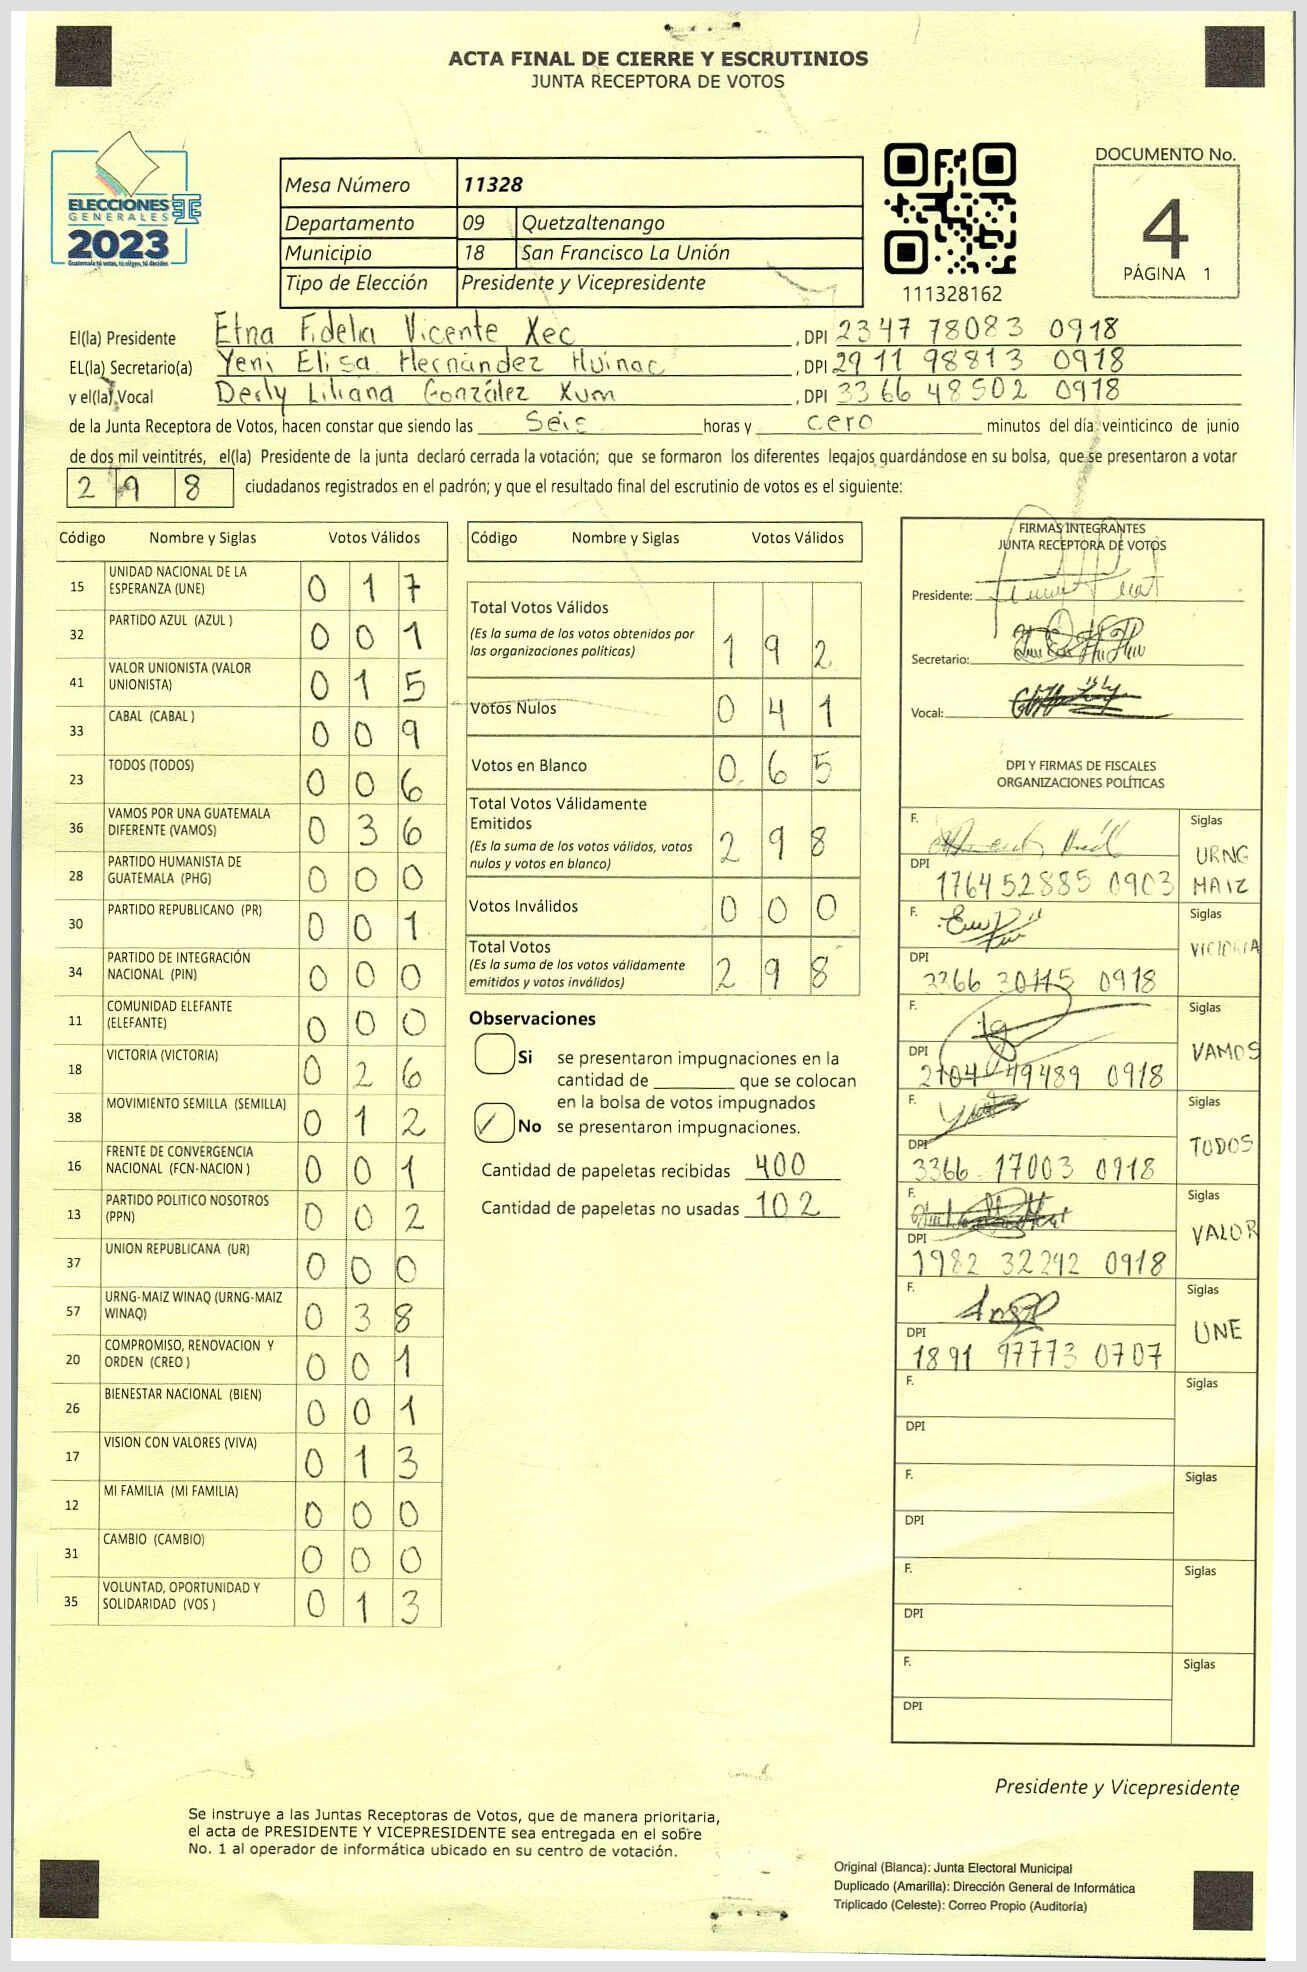 ACTA FINAL DE CIERRE Y ESCRUTINIOS
JUNTA RECEPTORA DE VOTOS
ELECCIONES
GENERALES
2023
Guatemala tú votas, tú eliges, tú decides
Mesa Número 11328
Departamento 09 Quetzaltenango
Municipio 18 San Francisco La Unión
Tipo de Elección Presidente y Vicepresidente
111328162
DOCUMENTO No.
4
PÁGINA 1
El(la) Presidente Etna Fidelia Vicente Xec, DPI 2347 78083 0918
EL(la) Secretario(a) Yeni Elisa Hernández Huinac, DPI 2911 98813 0918
y el(la) Vocal Desly Liliana González Xum, DPI 3366 48502 0918
de la Junta Receptora de Votos, hacen constar que siendo las Seis horas y cero minutos del día veinticinco de junio
de dos mil veintitrés, el(la) Presidente de la junta declaró cerrada la votación; que se formaron los diferentes legajos guardándose en su bolsa, que se presentaron a votar
2 9 8 ciudadanos registrados en el padrón; y que el resultado final del escrutinio de votos es el siguiente:
Código Nombre y Siglas Votos Válidos
15 UNIDAD NACIONAL DE LA
ESPERANZA (UNE) 0 1 7
32 PARTIDO AZUL (AZUL ) 0 0 1
41 VALOR UNIONISTA (VALOR
UNIONISTA) 0 1 5
33 CABAL (CABAL ) 0 0 9
23 TODOS (TODOS) 0 0 6
36 VAMOS POR UNA GUATEMALA
DIFERENTE (VAMOS) 0 3 6
28 PARTIDO HUMANISTA DE
GUATEMALA (PHG) 0 0 0
30 PARTIDO REPUBLICANO (PR) 0 0 1
34 PARTIDO DE INTEGRACIÓN
NACIONAL (PIN) 0 0 0
11 COMUNIDAD ELEFANTE
(ELEFANTE) 0 0 0
18 VICTORIA (VICTORIA) 0 2 6
38 MOVIMIENTO SEMILLA (SEMILLA) 0 1 2
16 FRENTE DE CONVERGENCIA
NACIONAL (FCN-NACION ) 0 0 1
13 PARTIDO POLITICO NOSOTROS
(PPN) 0 0 2
37 UNION REPUBLICANA (UR) 0 0 0
57 URNG-MAIZ WINAQ (URNG-MAIZ
WINAQ) 0 3 8
20 COMPROMISO, RENOVACION Y
ORDEN (CREO ) 0 0 1
26 BIENESTAR NACIONAL (BIEN) 0 0 1
17 VISION CON VALORES (VIVA) 0 1 3
12 MI FAMILIA (MI FAMILIA) 0 0 0
31 CAMBIO (CAMBIO) 0 0 0
35 VOLUNTAD, OPORTUNIDAD Y
SOLIDARIDAD (VOS ) 0 1 3
Código Nombre y Siglas Votos Válidos
Total Votos Válidos
(Es la suma de los votos obtenidos por
las organizaciones políticas) 1 9 2
Votos Nulos 0 4 1
Votos en Blanco 0 6 5
Total Votos Válidamente
Emitidos
(Es la suma de los votos válidos, votos
nulos y votos en blanco) 2 9 8
Votos Inválidos 0 0 0
Total Votos
(Es la suma de los votos válidamente
emitidos y votos inválidos) 2 9 8
Observaciones
Si se presentaron impugnaciones en la
cantidad de ________ que se colocan
en la bolsa de votos impugnados
No se presentaron impugnaciones.
Cantidad de papeletas recibidas 400
Cantidad de papeletas no usadas 102
FIRMAS INTEGRANTES
JUNTA RECEPTORA DE VOTOS
Presidente:
Secretario:
Vocal:
DPI Y FIRMAS DE FISCALES
ORGANIZACIONES POLÍTICAS
F. Siglas
URNG
MAIZ
DPI
1764 52885 0903
F. Siglas
VICTORIA
DPI
3366 30115 0918
F. Siglas
VAMOS
DPI
2104 49489 0918
F. Siglas
TODOS
DPI
3366 17003 0918
F. Siglas
VALOR
DPI
1982 32292 0918
F. Siglas
UNE
DPI
1891 97773 0707
F. Siglas
DPI
F. Siglas
DPI
F. Siglas
DPI
F. Siglas
DPI
Presidente y Vicepresidente
Se instruye a las Juntas Receptoras de Votos, que de manera prioritaria,
el acta de PRESIDENTE Y VICEPRESIDENTE sea entregada en el sobre
No. 1 al operador de informática ubicado en su centro de votación.
Original (Blanca): Junta Electoral Municipal
Duplicado (Amarilla): Dirección General de Informática
Triplicado (Celeste): Correo Propio (Auditoría)